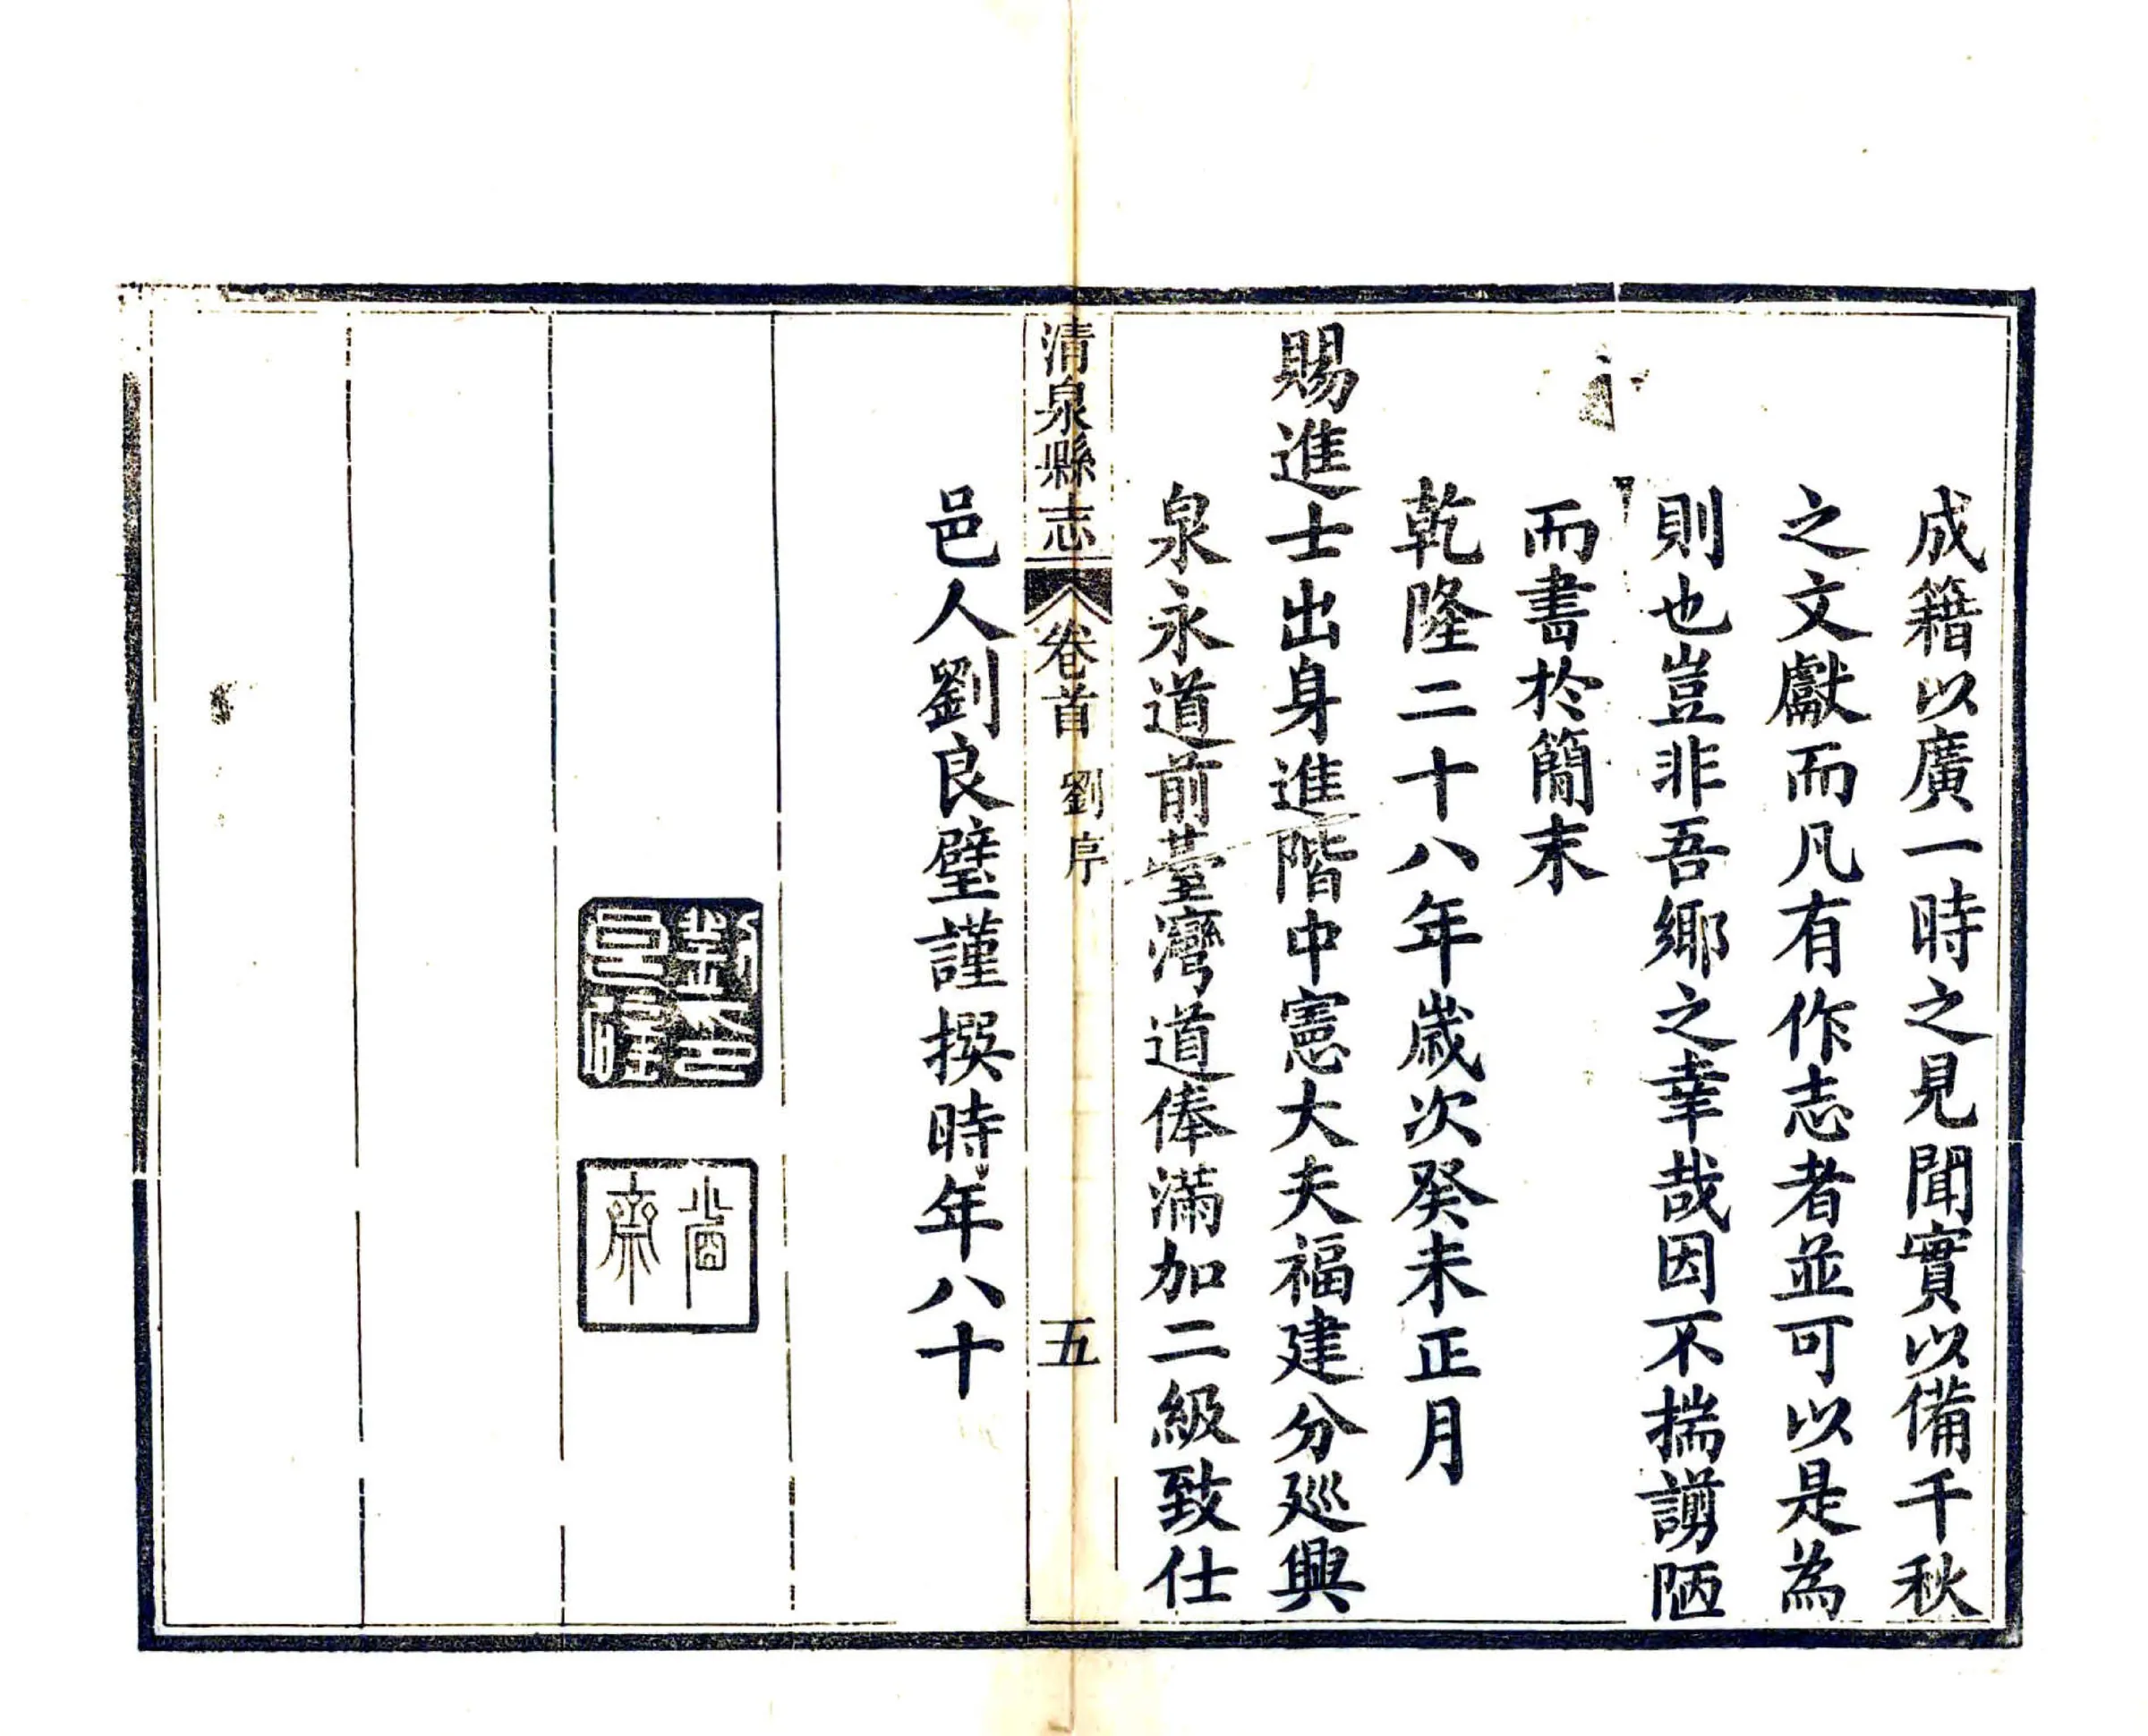 成籍以廣一時之見聞實以備千秋
之文獻而凡有作志者並可以是為
則也豈非吾鄉之幸哉因不揣謭陋
而書於簡末
乾隆二十八年歲次癸未正月
賜進士出身進階中憲大夫福建分廵興
泉永道前臺灣道俸滿加二級致仕
清泉縣志
卷首
劉序
五
邑人劉良璧謹撰時年八十
劉印良璧
省齋